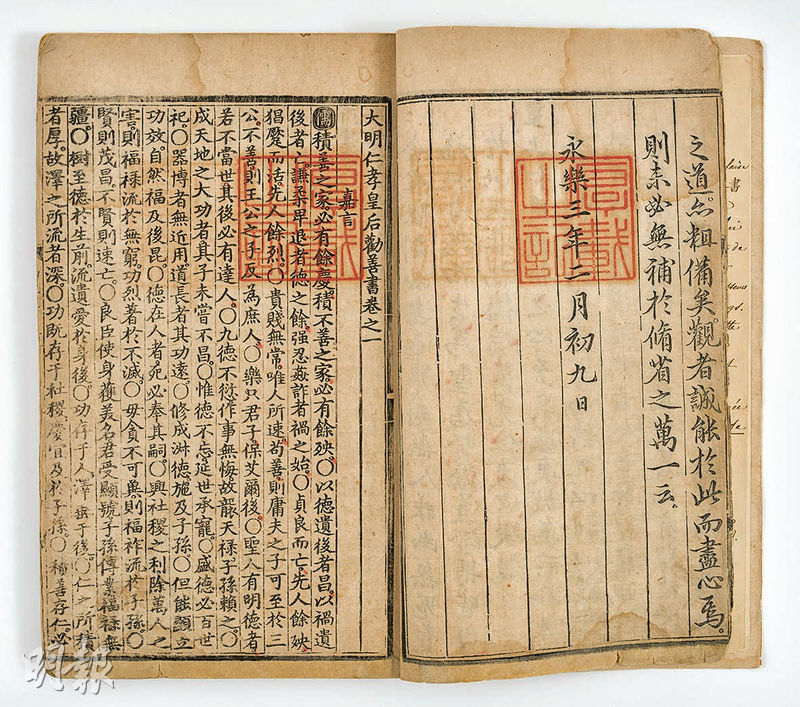 之道。亦粗備矣。觀者誠能於此而盡心焉。
則未必無補於脩省之萬一云。
永樂三年二月初九日
大明仁孝皇后勸善書卷之一
嘉言
積善之家必有餘慶。積不善之家。必有餘殃。〇以德遺後者昌。以禍遺
後者亡。謙柔早退者德之餘。強忍姦詐者禍之始。〇貞良而亡。先人餘殃
猖蹷而活。先人餘烈。〇貴賤無常。唯人所速。苟善則庸夫之子可至於三
公。不善則王公之子反為庶人。〇樂只君子。保艾爾後。〇聖人有明德者
若不當世其後必有達人。〇九德不愆作事無悔故襲天祿子孫賴之。〇
成天地之大功者其子未嘗不昌。〇惟德不忘延世承寵。〇盛德必百世
祀。〇器博者無近用道長者其功遠。〇修成淋德施及子孫。〇但能顯立
功效。自然福及後昆。〇德在人者。死必奉其嗣。〇興社稷之利除萬人之
害。則福祿流於無窮功烈著於不滅。〇毋貪不可冀則福祚流於子孫。〇
賢則茂昌不賢則速亡。〇良臣使身獲美名君受顯號子孫傳業福祿無
疆。〇樹至德於生前流遺愛於身後。〇功存于人澤垂于後。〇仁之所積
者厚。故澤之所流者深。〇功既存于社稷慶宜及於子孫。〇積善存仁必
明報